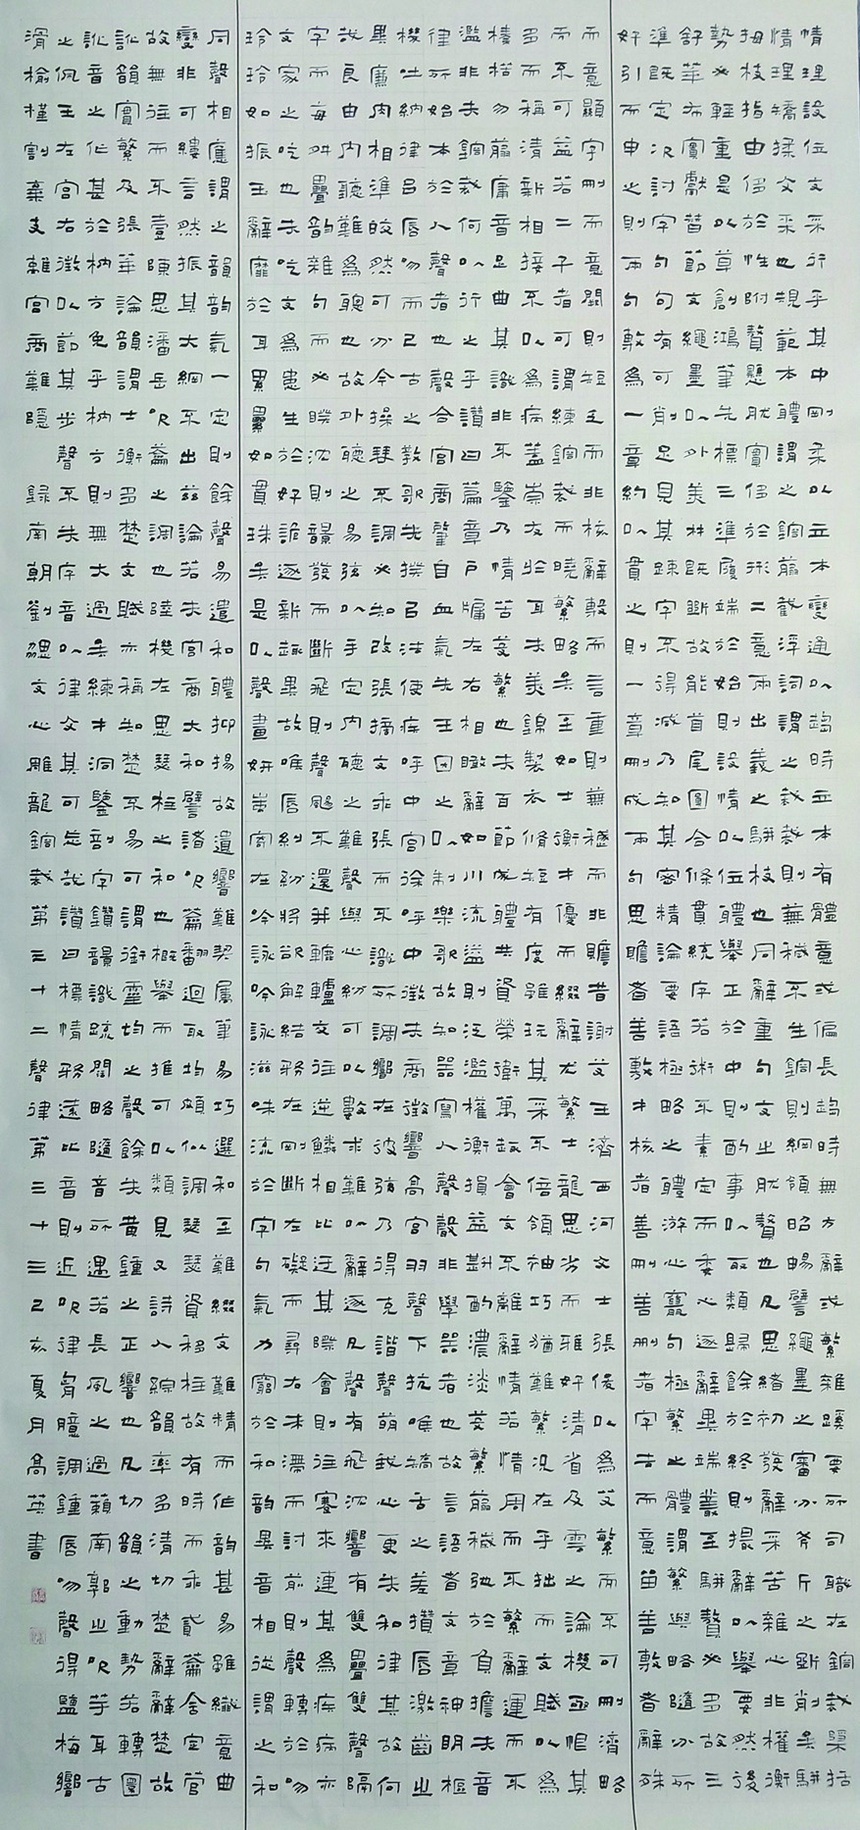 情理設位文采行乎其中剛柔以立本變通以趨時立本有體意或偏長趨時無方辭或繁雜蹊要所司職在鎔裁櫽括
情理矯揉文采也規範本體謂之鎔剪截浮詞謂之裁裁則蕪穢不生鎔則綱領昭暢譬繩墨之審分斧斤之斲削矣駢
拇枝指由侈於性附贅懸肬實侈於形二意兩出義之駢枝也同辭重句文之肬贅也凡思緒初發辭采苦雜心非權衡
勢必輕重是以草創鴻筆先標三準履端於始則設情以位體舉正於中則酌事以取類歸餘於終則撮辭以舉要然後
舒華布實獻替節文繩墨以外美材既斲故能首尾圓合條貫統序若術不素定而委心逐辭異端叢至駢贅必多故三
準既定次討字句句有可削足見其疎字不得減乃知其密精論要語極略之體游心竄句極繁之體謂繁與略隨分所
好引而申之則兩句敷為一章約以貫之則一章刪成兩句思贍者善敷才核者善刪善刪者字去而意留善敷者辭殊
而意顯字刪而意闕則短乏而非核辭敷而言重則蕪穢而非贍昔謝艾王濟西河文士張後以為艾繁而不可刪濟略
而不可益若二子者可謂練鎔裁而曉繁略矣至如士衡才優而綴辭尤繁士龍思劣而雅好清省及雲之論機亟恨其
多而稱清新相接不以為病蓋崇友于耳夫美錦製衣脩短有度雖玩其采不倍領袖巧猶難繁況在乎拙而文賦以為
榛楛勿翦庸音足曲其識非不鑒乃情苦芟繁也夫百節成體共資榮衛萬趣會文不離辭情若情周而不繁辭運而不
濫非夫鎔裁何以行之乎讚曰篇章戶牖左右相瞰辭如川流溢則泛濫權衡損益斟酌濃淡芟繁翦穢弛於負擔夫音
律所始本於人聲者也聲合宮商肇自血氣先王因之以制樂歌故知器寫人聲聲非學器者也故言語者文章神明樞
機吐納律呂脣吻而已古之教歌先揆以法使疾呼中宮徐呼中徵夫商徵響高宮羽聲下抗喉矯舌之差攢脣激齒之
異廉肉相準皎然可分今操琴不調必知改張摛文乖張而不識所調響在彼弦乃得克諧聲萌我心更失和律其故何
哉良由內聽難為聰也故外聽之易弦以手定內聽之難聲與心紛可以數求難以辭逐凡聲有飛沈響有雙疊雙聲隔
字而每舛疊韻雜句而必睽沈則響發而斷飛則聲颺不還並轆轤交往逆鱗相比迂其際會則往蹇來連其為疾病亦
文家之吃也夫吃文為患生於好詭逐新趣異故喉脣糾紛將欲解結務在剛斷左礙而尋右末滯而討前則聲轉於吻
玲玲如振玉辭靡於耳纍纍如貫珠矣是以聲畫妍蚩寄在吟詠吟詠滋味流於字句氣力窮於和韻異音相從謂之和
同聲相應謂之韻韻氣一定則餘聲易遣和體抑揚故遺響難契屬筆易巧選和至難綴文難精而作韻甚易雖纖意曲
變非可縷言然振其大綱不出茲論若夫宮商大和譬諸吹籥翻迴取均頗似調瑟瑟資移柱故有時而乖貳籥含定管
故無往而不壹陳思潘岳吹籥之調也陸機左思瑟柱之和也概舉而推可以類見又詩人綜韻率多清切楚辭辭楚故
訛韻實繁及張華論韻謂士衡多楚文賦亦稱知楚不易可謂銜靈均之聲餘失黃鍾之正響也凡切韻之動勢若轉圜
訛音之作甚於枘方免乎枘方則無大過矣練才洞鑒剖字鑽響識疏闊略隨音所遇若長風之過籟南郭之吹竽耳古
之佩玉左宮右徵以節其步聲不失序音以律文其可忘哉讚曰標情務遠比音則近吹律胸臆調鍾脣吻聲得鹽梅響
滑榆槿割棄支離宮商難隱 錄南朝劉勰文心雕龍鎔裁第三十二聲律第三十三己亥夏月高英書